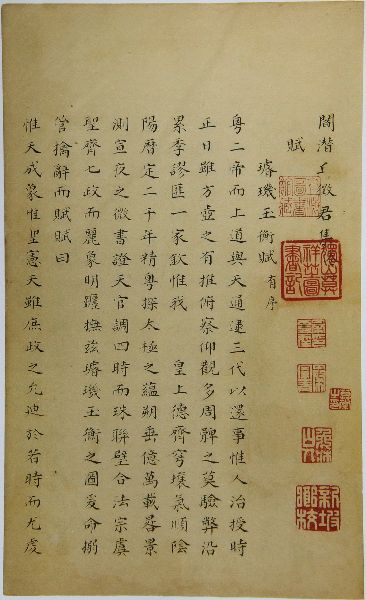 閻潛丘徵君集
賦
璿璣玉衡賦 有序
粵二帝而上道與天通逮三代以還事惟人治授時
正日雖方壺之有推俯察仰觀多周髀之莫驗弊沿
累季謬匪一家欽惟我 皇上德齊穹壤氣順陰
陽曆定二千年精粵探太極之蘊朔垂億萬載晷景
測宣夜之微書證天官調四時而珠聯璧合法宗虞
聖齊七政而麗象明躔撫茲璿璣玉衡之圖爰命搦
管摛辭而賦賦曰
惟天成象惟聖憲天雖庶政之允迪於若時而尤虔
新坡鄉校